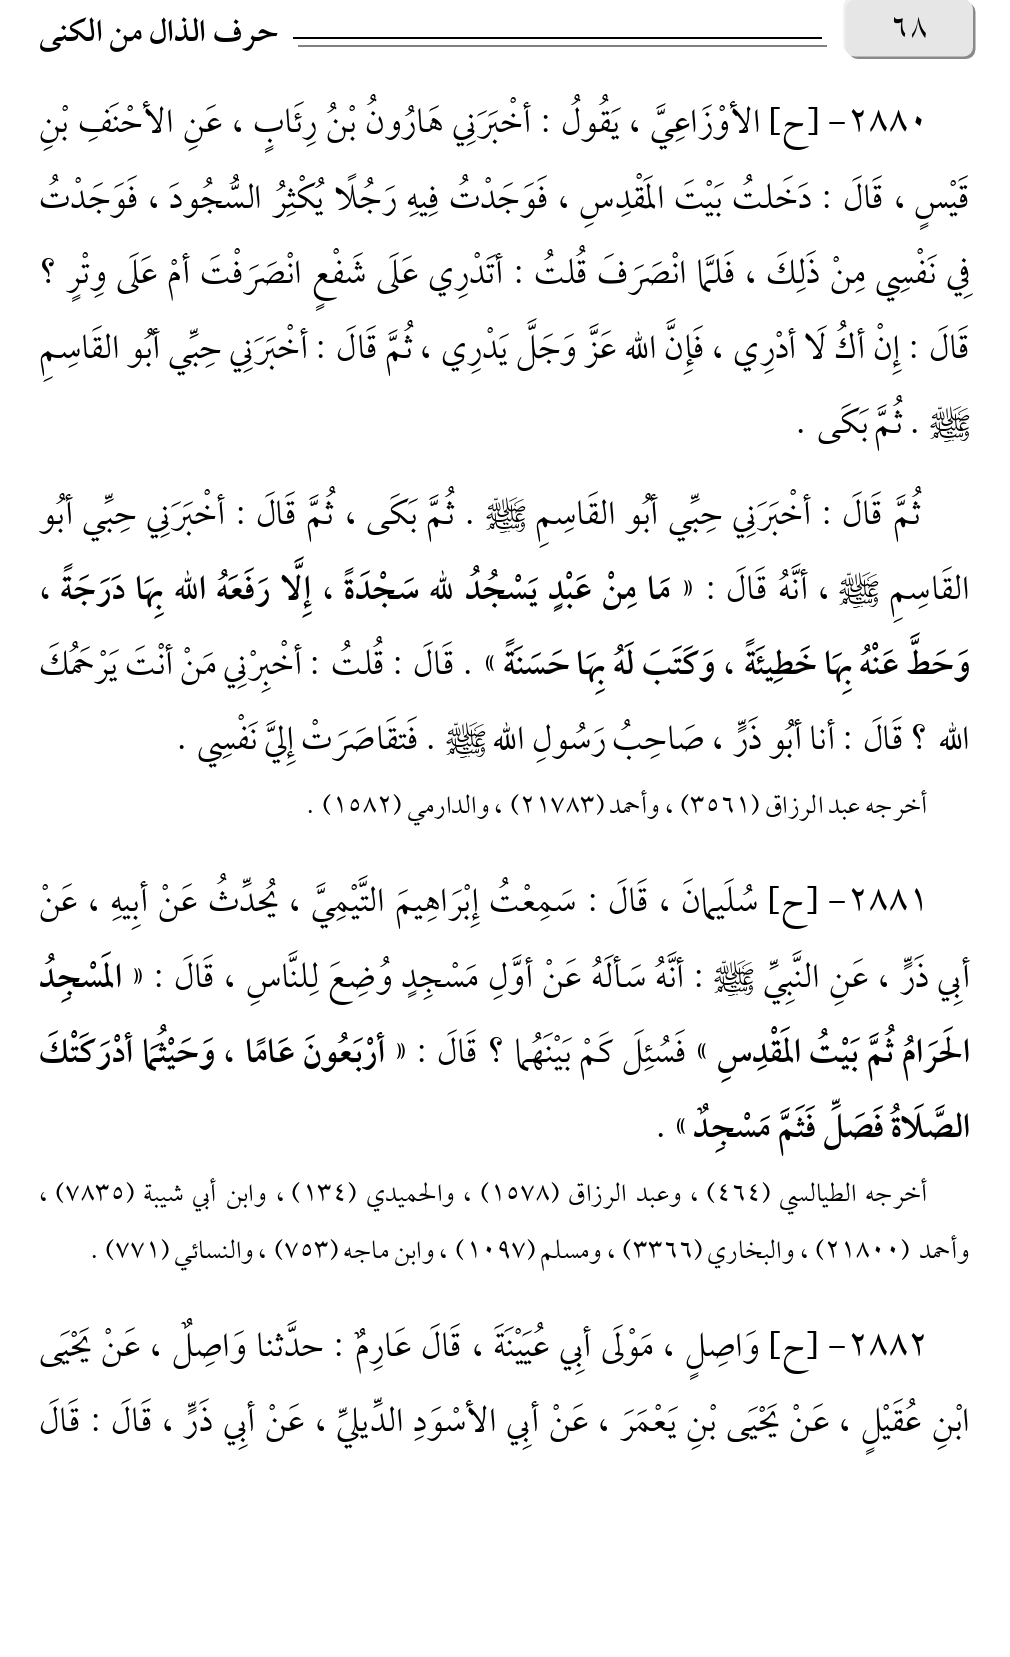 ٦٨
حرف الذال من الكنى
٢٨٨٠- [ح] الأوْزَاعِيَّ ، يَقُولُ : أخْبَرَنِي هَارُونُ بْنُ رِئَابٍ ، عَنِ الأحْنَفِ بْنِ
قَيْسٍ ، قَالَ : دَخَلتُ بَيْتَ المَقْدِسِ ، فَوَجَدْتُ فِيهِ رَجُلًا يُكْثِرُ السُّجُودَ ، فَوَجَدْتُ
فِي نَفْسِي مِنْ ذَلِكَ ، فَلمَّا انْصَرَفَ قُلتُ : أتَدْرِي عَلَى شَفْعٍ انْصَرَفْتَ أمْ عَلَى وِتْرٍ ؟
قَالَ : إِنْ أكُ لَا أدْرِي ، فَإِنَّ الله عَزَّ وَجَلَّ يَدْرِي ، ثُمَّ قَالَ : أخْبَرَنِي حِبِّي أبُو القَاسِمِ
ﷺ . ثُمَّ بَكَى .
ثُمَّ قَالَ : أخْبَرَنِي حِبِّي أبُو القَاسِمِ ﷺ . ثُمَّ بَكَى ، ثُمَّ قَالَ : أخْبَرَنِي حِبِّي أبُو
القَاسِمِ ﷺ ، أنَّهُ قَالَ : « مَا مِنْ عَبْدٍ يَسْجُدُ لله سَجْدَةً ، إِلَّا رَفَعَهُ الله بِهَا دَرَجَةً ،
وَحَطَّ عَنْهُ بِهَا خَطِيئَةً ، وَكَتَبَ لَهُ بِهَا حَسَنَةً » . قَالَ : قُلتُ : أخْبِرْنِي مَنْ أنْتَ يَرْحَمُكَ
الله ؟ قَالَ : أنا أبُو ذَرٍّ ، صَاحِبُ رَسُولِ الله ﷺ . فَتقَاصَرَتْ إِليَّ نَفْسِي .
أخرجه عبد الرزاق (٣٥٦١) ، وأحمد (٢١٧٨٣) ، والدارمي (١٥٨٢) .
٢٨٨١- [ح] سُلَيمانَ ، قَالَ : سَمِعْتُ إِبْرَاهِيمَ التَّيْمِيَّ ، يُحدِّثُ عَنْ أبِيهِ ، عَنْ
أبِي ذَرٍّ ، عَنِ النَّبِيِّ ﷺ : أنَّهُ سَألَهُ عَنْ أوَّلِ مَسْجِدٍ وُضِعَ لِلنَّاسِ ، قَالَ : « المَسْجِدُ
الحَرَامُ ثُمَّ بَيْتُ المَقْدِسِ » فَسُئِلَ كَمْ بَيْنَهُما ؟ قَالَ : « أرْبَعُونَ عَامًا ، وَحَيْثُما أدْرَكَتْكَ
الصَّلَاةُ فَصَلِّ فَثَمَّ مَسْجِدٌ » .
أخرجه الطيالسي (٤٦٤) ، وعبد الرزاق (١٥٧٨) ، والحميدي (١٣٤) ، وابن أبي شيبة (٧٨٣٥) ،
وأحمد (٢١٨٠٠) ، والبخاري (٣٣٦٦) ، ومسلم (١٠٩٧) ، وابن ماجه (٧٥٣) ، والنسائي (٧٧١) .
٢٨٨٢- [ح] وَاصِلٍ ، مَوْلَى أبِي عُيَيْنَةَ ، قَالَ عَارِمٌ : حدَّثنا وَاصِلٌ ، عَنْ يَحْيَى
ابْنِ عُقَيْلٍ ، عَنْ يَحْيَى بْنِ يَعْمَرَ ، عَنْ أبِي الأسْوَدِ الدِّيليِّ ، عَنْ أبِي ذَرٍّ ، قَالَ : قَالَ